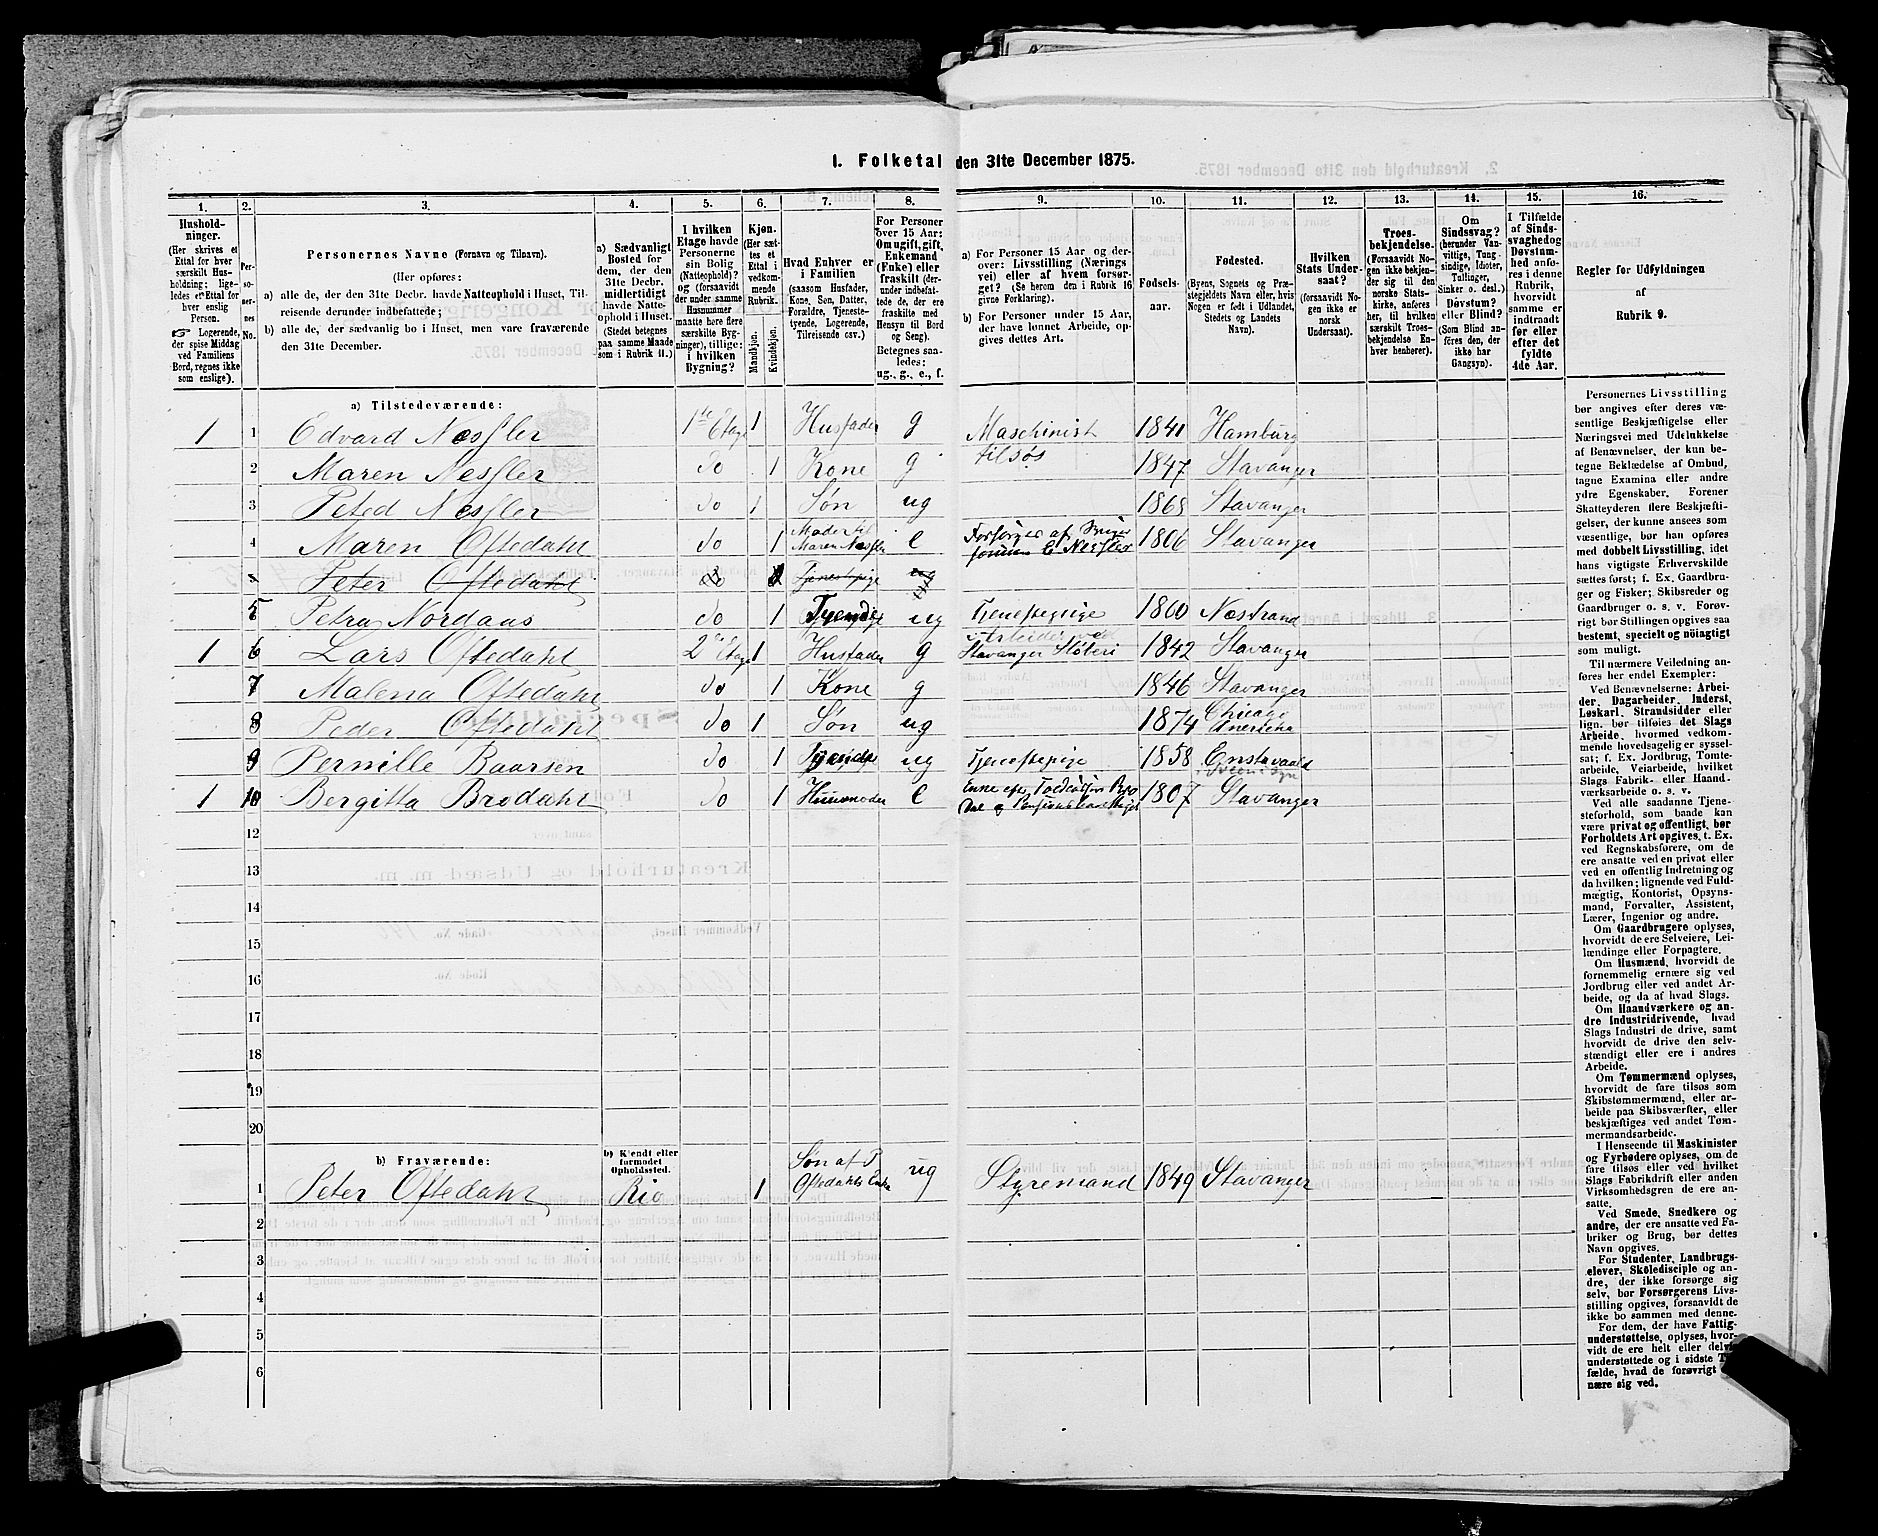 I. Folketal den 31te December 1875.
1. 2. 3. 4. 5. 6. 7. 8. 9. 10. 11. 12. 13. 14. 15. 16.
Hushold-
ninger.
(Her skrives et
Ettal for hver
særskilt Hus-
holdning; lige-
ledes et Ettal for
hver enslig
Person.
☞ Logerende,
der spise Middag
ved Familiens
Bord, regnes ikke
som enslige).
Per-
so-
ner-
nes
No.
Personernes Navne (Fornavn og Tilnavn).
(Her opføres:
a) alle de, der den 31te Decbr. havde Natteophold i Huset, Til-
reisende derunder indbefattede;
b) alle de, der sædvanlig bo i Huset, men vare fraværende
den 31te December.
a) Sædvanligt
Bosted for
dem, der den
31te Decbr.
midlertidigt
havde Natte-
ophold i Huset.
(Stedet betegnes
paa samme Maade
som i Rubrik 11.)
I hvilken
Etage havde
Personerne
sin Bolig
(Natteophold)?
og (forsaavidt
der under samme
Husnummer
maatte høre flere
særskilte Byg-
ninger), tillige:
i hvilken
Bygning?
Kjøn.
(Her sæt-
tes et
Ettal i
vedkom-
mende
Rubrik.)
Mandkjøn.
Kvindekjøn.
Hvad Enhver er
i Familien
(saasom Husfader,
Kone, Søn, Datter,
Forældre, Tjeneste-
tyende, Logerende,
Tilreisende osv.)
For Personer
over 15 Aar:
Om ugift, gift,
Enkemand
(Enke) eller
fraskilt (der-
under indbefat-
tede de, der ere
fraskilte med
Hensyn til Bord
og Seng).
Betegnes saa-
ledes:
ug., g., e., f.
a) For Personer 15 Aar og der-
over: Livsstilling (Nærings
vei) eller af hvem forsør-
get? (Se herom den i Rubrik 16
givne Forklaring).
b) For Personer under 15 Aar,
der have lønnet Arbeide, op-
gives dettes Art.
Fødsels-
aar.
Fødested.
(Byens, Sognets og Præ-
stegjeldets Navn eller, hvis
Nogen er født i Udlandet,
Stedets og Landets
Navn).
Hvilken
Stats Under-
saat?
(forsaavidt No-
gen ikke er
norsk
Undersaat).
Troes-
bekjendelse.
(Forsaavidt No-
gen ikke bekjen-
der sig til den
norske Stats-
kirke, anføres
her, til hvilken
særskilt Troes-
bekjendelse En-
hver henhører).
Om
Sindssvag?
(herunder Van-
vittige, Tung-
sindige, Idioter,
Tullinger,
Sinker o. desl.)
Døvstum?
eller Blind?
(Som Blind an-
føres den, der
ikke har
Gangsyn).
I Tilfælde
af Sinds-
svaghed og
Døvstum-
hed anfø-
res i denne
Rubrik,
hvorvidt
samme er
indtraadt
før eller
efter det
fyldte
4de Aar.
Regler for Udfyldningen
af
Rubrik 9.
a) Tilstedeværende:
1 1 Edvard Nessler 1ste Etage 1 Husfader g Maschinist tilsøs 1841 Hamburg
2 Maren Nessler do 1 Kone g 1847 Stavanger
3 Peted Nessler do 1 Søn ug 1868 Stavanger
4 Maren Oftedahl do 1 Moder til Maren Nessler e Forsørges af E Nessler 1806 Stavanger
5 Peter Oftedahl do Tjenestpige ug
5 Petra Nordaas do 1 Tyende ug Tjenestepige 1860 Næstrand
1 6 Lars Oftedahl 2den Etage 1 Husfader g Arbeider ved Stavanger Støberi 1842 Stavanger
7 Malena Oftedahl do 1 Kone g 1846 Stavanger
8 Peder Oftedahl do 1 Søn ug 1874 Chicago Amerika
9 Pernille Baarsen do 1 Tyende ug Tjenestepige 1858
1 10 Bergitta Brodahl do 1 Husmoder e Enke efter 1807 Stavanger
12
13
14
15
16
17
18
19
20
b) Fraværende:
b) Kjendt eller
formodet
Opholdssted.
1 Peter Oftedahl Rio 1 Søn af P Oftedahls Enke ug Styremand 1849 Stavanger
2
3
4
5
6
Personernes Livsstilling
bør angives efter deres væ-
sentlige Beskjæftigelse eller
Næringsvei med Udelukkelse
af Benævnelser, der kun be-
tegne Beklædelse af Ombud,
tagne Examina eller andre
ydre Egenskaber. Forener
Skatteyderen flere Beskjæfti-
gelser, der kunne ansees som
væsentlige, bør han opføres
med dobbelt Livsstilling, idet
hans vigtigste Erhvervskilde
sættes først; f. Ex. Gaardbru-
ger og Fisker; Skibsreder og
Gaardbruger o. s. v. Forøv-
rigt bør Stillingen opgives saa
bestemt, specielt og nöiagtigt
som muligt.
Til nærmere Veiledning an-
føres her endel Exempler:
Ved Benævnelserne: Arbei-
der, Dagarbeider, Inderst,
Løskarl, Strandsidder eller
lign. bør tilføies det Slags
Arbeide, hvormed vedkom-
mende hovedsagelig er syssel-
sat; f. Ex. Jordbrug, Tomte-
arbeide, Veiarbeide, hvilket
Slags Fabrik- eller Haand-
værksarbeide o. s. v.
Ved alle saadanne Tjene-
steforhold, som baade kan
være privat og offentligt, bør
Forholdets Art opgives, t. Ex.
ved Regnskabsførere, om de
ere ansatte ved en privat eller
ved en offentlig Indretning og
da hvilken; lignende ved Fuld-
mægtig, Kontorist, Opsyns-
mand, Forvalter, Assistent,
Lærer, Ingeniør og andre.
Om Gaardbrugere oplyses,
hvorvidt de ere Selveiere, Lei-
lændinge eller Forpagtere.
Om Husmænd, hvorvidt de
fornemmelig ernære sig ved
Jordbrug eller ved andet Ar-
beide, og da af hvad Slags.
Om Haandværkere og an-
dre Industridrivende, hvad
Slags Industri de drive, samt
hvorvidt de drive den selv-
stændigt eller ere i andres
Arbeide.
Om Tømmermænd oplyses,
hvorvidt de fare tilsøs som
Skibstømmermænd, eller ar-
beide paa Skibsværfter, eller
beskjæftiges ved andet Tøm-
mermandsarbeide.
I Henseende til Maskinister
og Fyrbødere oplyses, om de
fare tilsøs eller ved hvilket
Slags Fabrikdrift eller anden
Virksomhed de ere an-
satte.
Ved Smede, Snedkere og
andre, der ere ansatte ved Fa-
briker og Brug, bør dettes
Navn opgives.
For Studenter, Landbrugs-
elever, Skoledisciple og an-
dre, der ikke forsørge sig
selv, bør Forsørgerens Livs-
stilling opgives, forsaavidt de
ikke bo sammen med denne.
For dem, der have Fattig-
understøttelse, oplyses, hvor-
vidt de ere helt eller delvis
understøttede og i sidste
fælde, hvad de forøvrigt
nære sig ved.